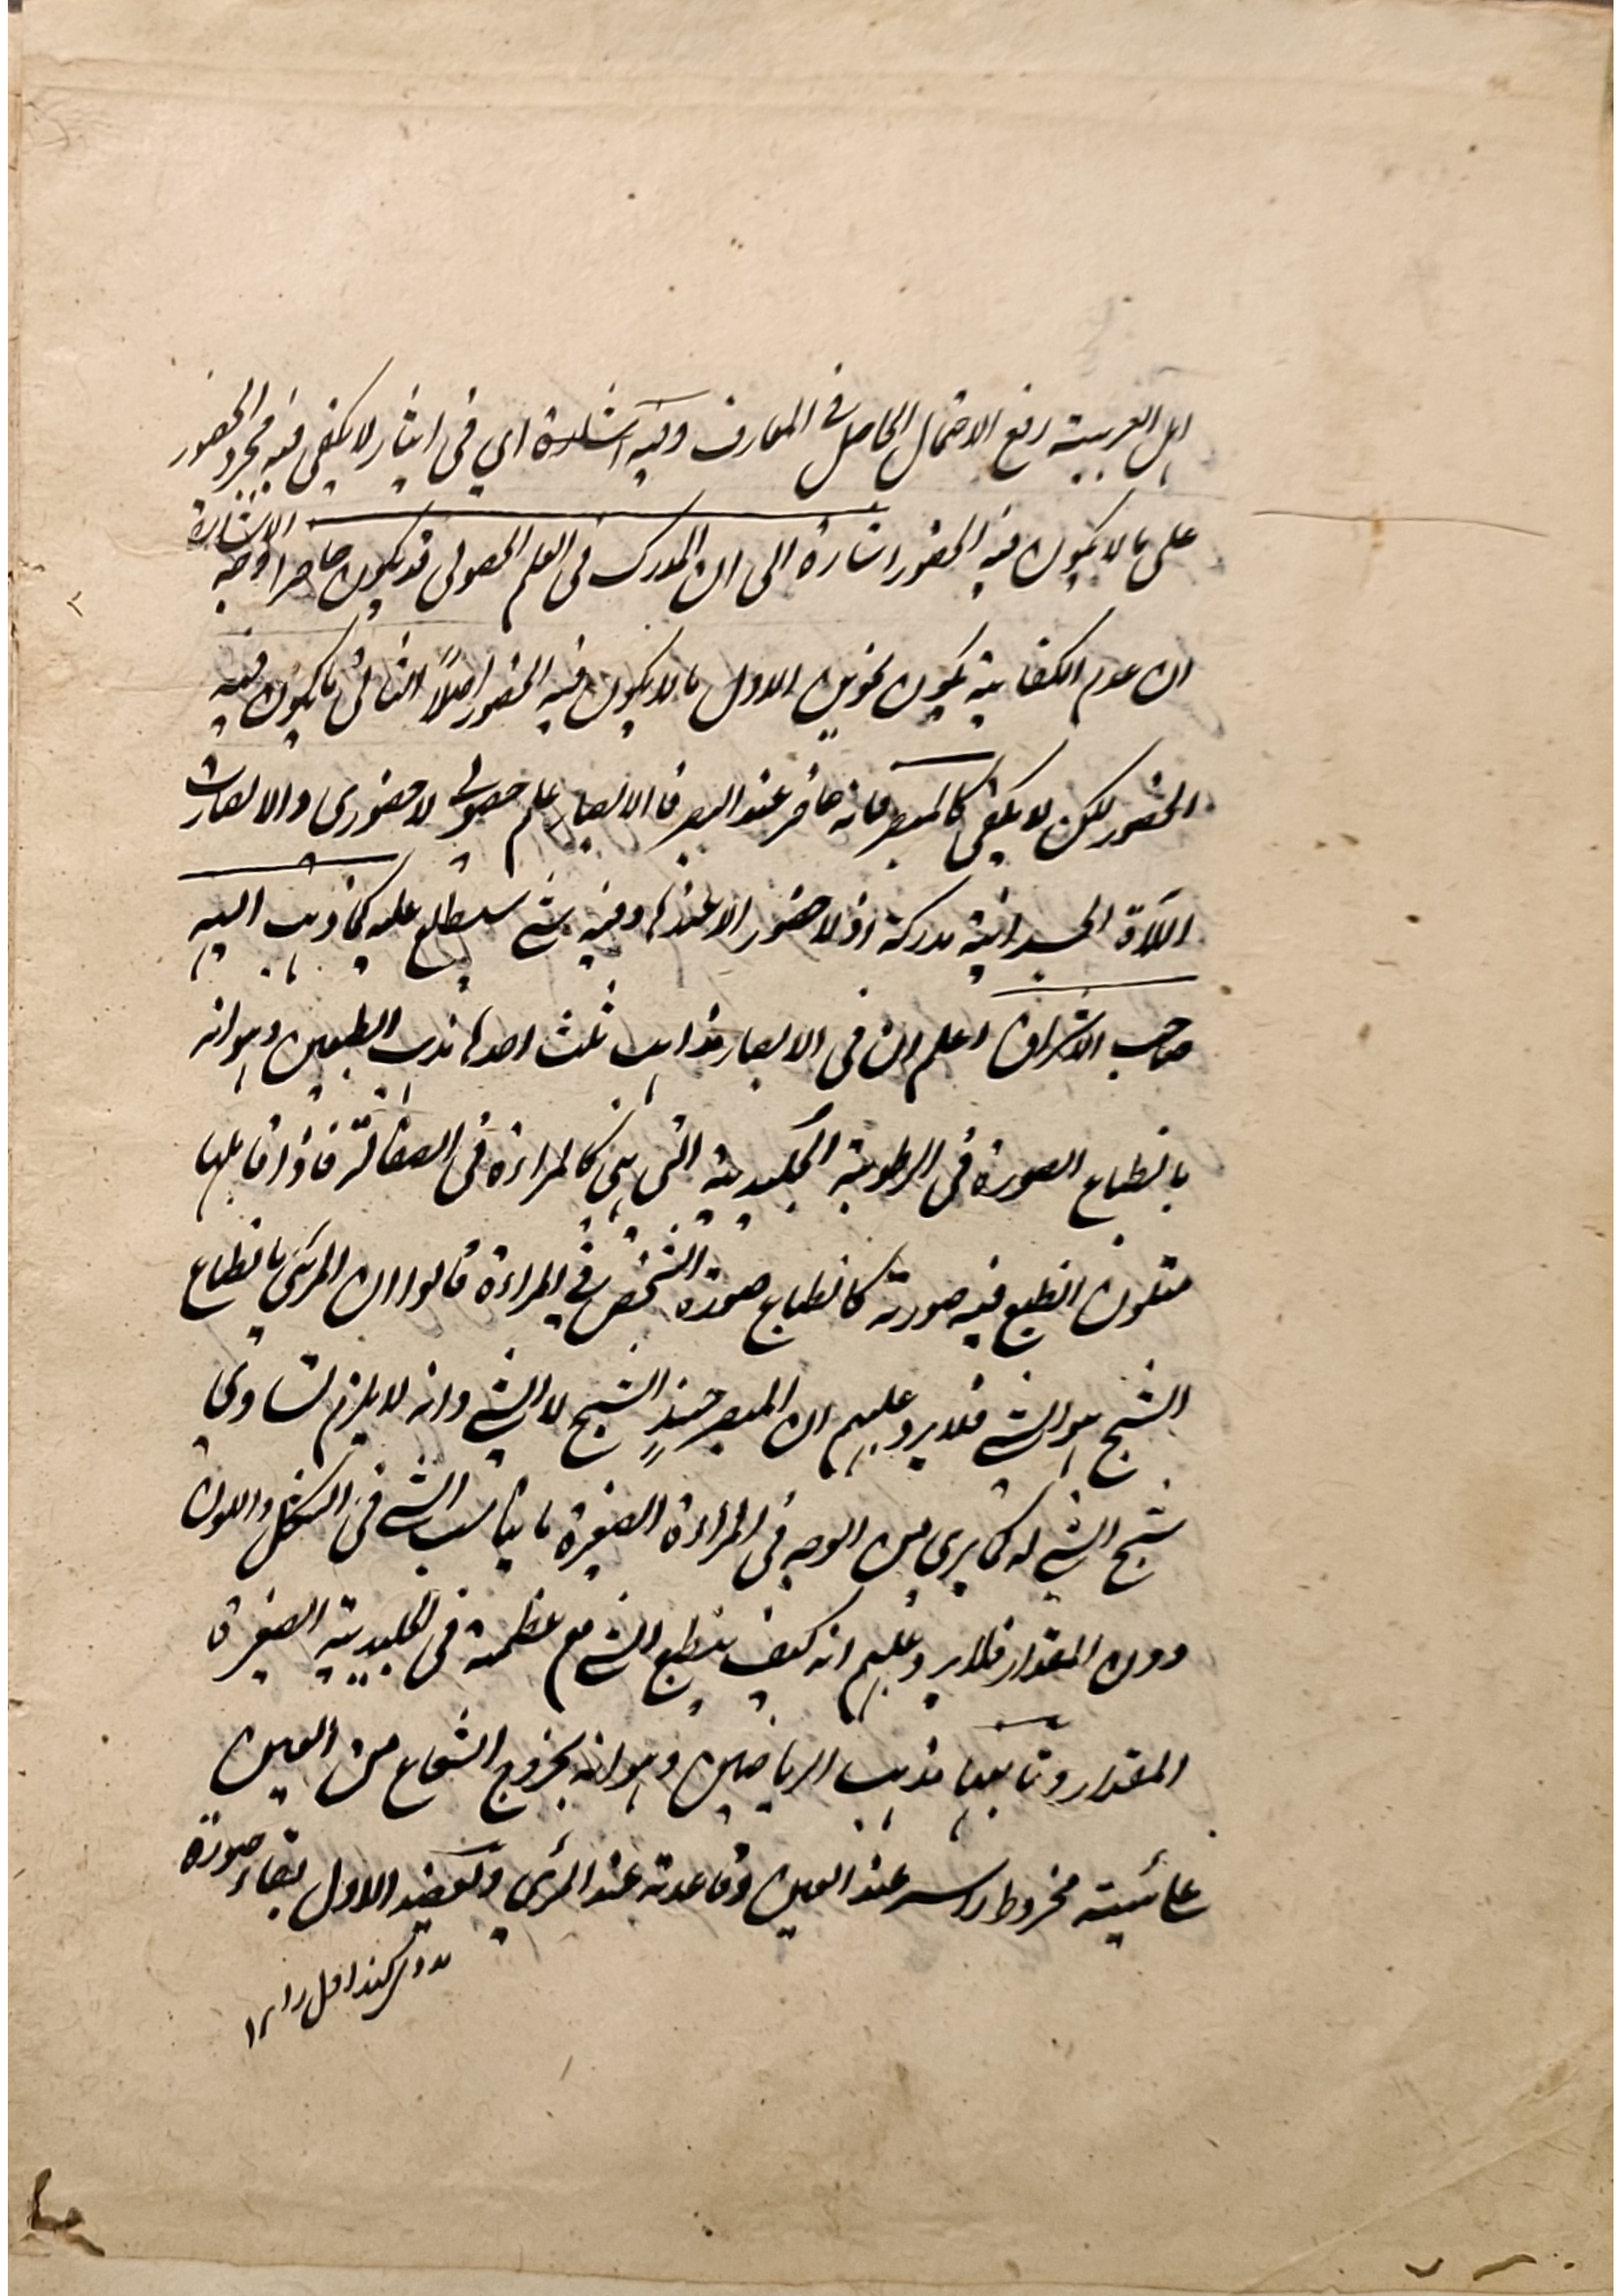 اهل العربية رفع الاحتمال الحاصل في المعارف وفيه اشارة اي في ايثار لا يكفي فيه مجرد الحضور
على ما لا يكون فيه الحضور اشارة الى ان المدرك في العلم الحصولي قد يكون حاضرا وجه الاشارة
ان عدم الكفاية يكون بنحوين الاول ما لا يكون فيه الحضور اصلاً الثاني ما يكون فيه
الحضور لكن لا يكفي كالمبصر فانه حاضر عند البصر فالابصار علم حصولي لا حضوري والا لصارت
الآلة الجسدانية مدركة اذ لا حضور الا عندها وفيه شئ سيطلع عليه كما ذهب اليه
صاحب الاشراق اعلم ان في الابصار مذاهب ثلث احدها مذهب الطبعين وهو انه
بانطباع الصورة في الرطوبة الجليدية التي هي كالمراءة في الصقالة فاذا قابلها
متلون انطبع فيه صورته كانطباع صورة الشخص في المراءة قالوا ان المرئي بانطباع
الشبح هو الشئ فلا يرد عليهم ان المبصر حينئذٍ الشبح لا الشئ وانه لا يلزم تساوي
شبح الشئ له كما يرى من الوجه في المراءة الصغيرة ما يناسب الشئ في الشكل واللون
دون المقدار فلا يرد عليهم انه كيف ينطبع الشئ مع عظمه في الجليدية الصغيرة
المقدار وثانيها مذهب الرياضين وهو انه بخروج الشعاع من العين
على هيئة مخروط راسه عند العين وقاعدته عند المرئي ويعضد الاول بقاء صورة
كند اول را ١٢